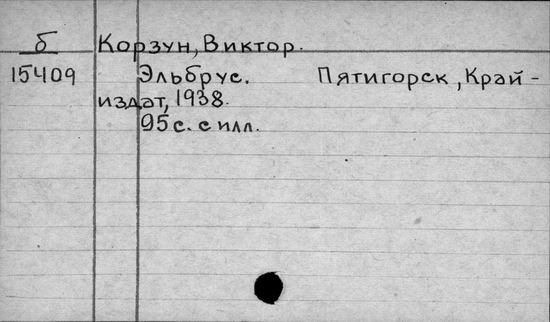 б Корзун, Виктор.
15409 Эльбрус. Пятигорск, Край-
издат, 1938.
95 с. с илл.